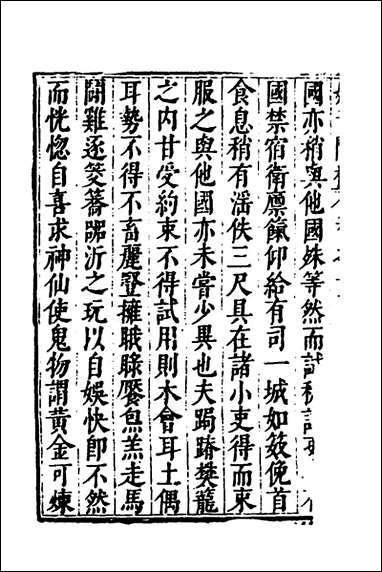 國亦稍與他國殊等然而試
國禁宿衛廪餼仰給有司一城如斂俛首
食息稍有滛佚三尺具在諸小吏得而束
服之與他國亦未嘗少異也夫跼蹐樊籠
之内甘受約束不得試用則木會耳土偶
耳勢不得不畜麗竪擁膱臊饜炰羔走馬
鬭雞逐筊簺之玩以自娱快卽不然
而恍惚自喜求神仙使鬼物謂黃金可煉